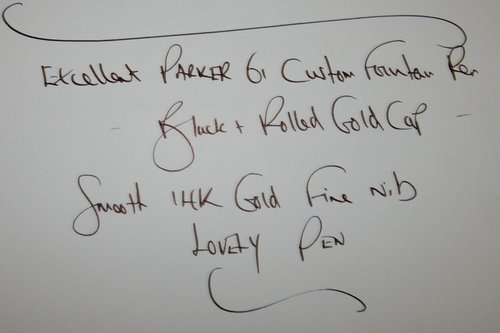 Excellent PARKER 61 Custom Fountain Pen
- Black + Rolled Gold Cap -
Smooth 14K Gold Fine Nib
LOVELY PEN